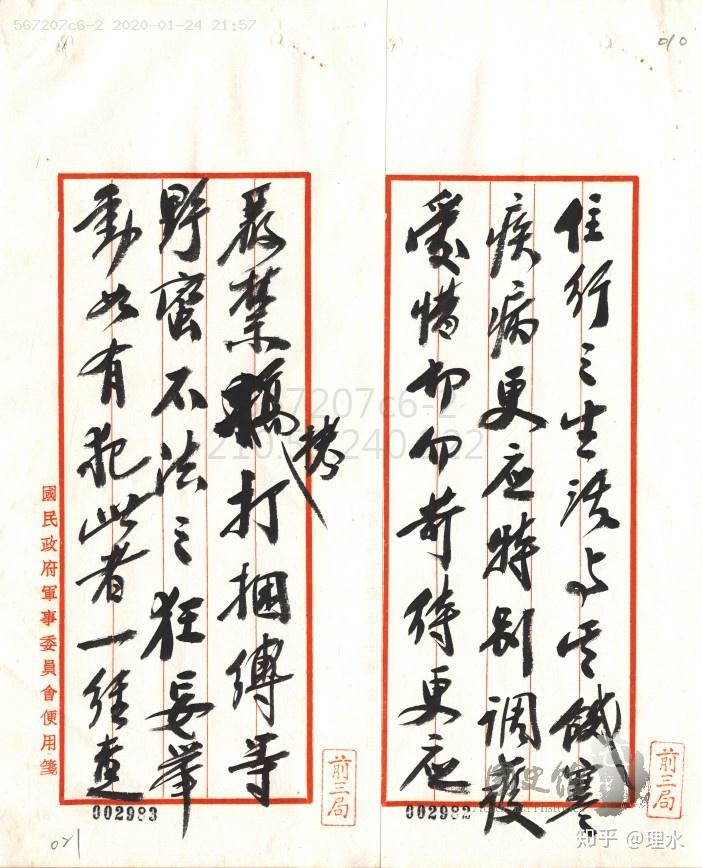 567207c6-2 2020-01-24 21:57
010
住行之生活与其饑寒
疾病更应特别調護
愛惜切勿苛待更应
前三局
002982
嚴禁拷打捆縛等
野蛮不法之狂妄舉
動如有犯此者一經查
國民政府軍事委員會便用箋
前三局
002983
021
567207c6-2
知乎 @理水